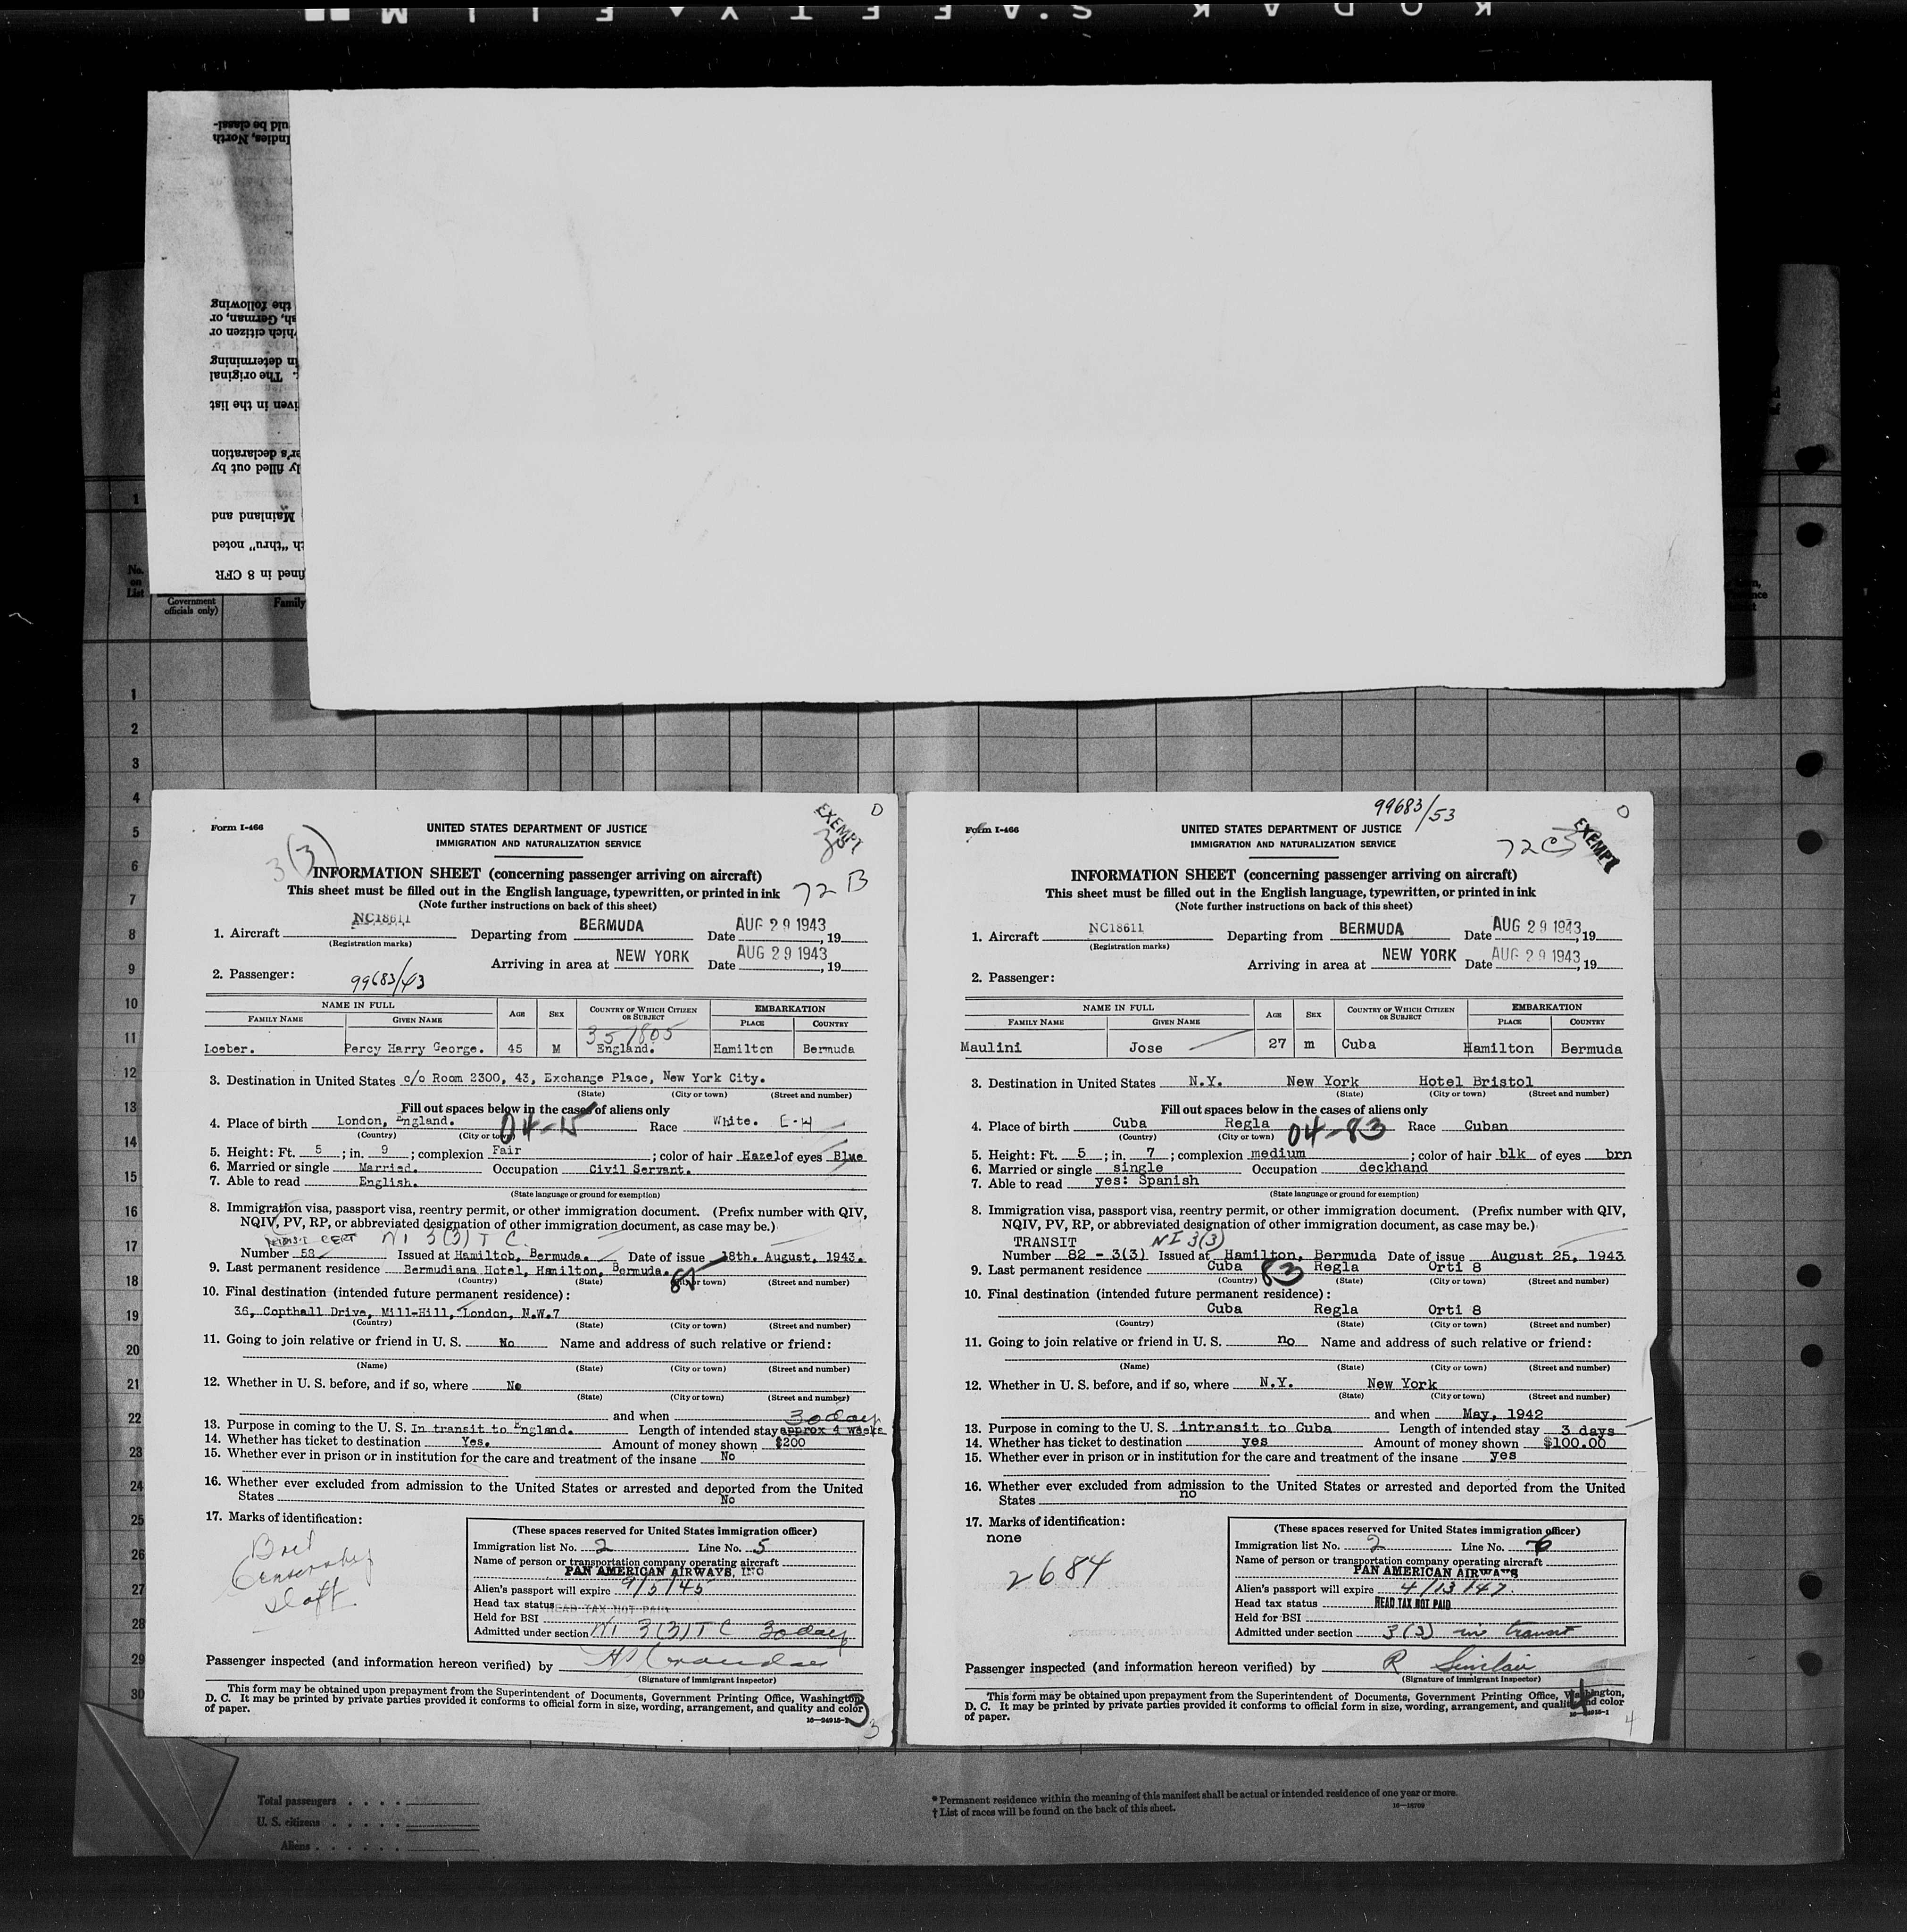 KODAK SAFETY FILM
uld be classi-
Indies, North
the following
sh, German, or
hich citizen or
in determining
. The original
iven in the list
er's declaration
ly filled out by
Mainland and
th "thru" noted
fined in 8 CFR
No. on List
Government officials only)
Family
1
1
2
3
4
5
6
7
8
9
10
11
12
13
14
15
16
17
18
19
20
21
22
23
24
25
26
27
28
29
30
Form I-466
UNITED STATES DEPARTMENT OF JUSTICE
IMMIGRATION AND NATURALIZATION SERVICE
EXEMPT
O
3(3)
INFORMATION SHEET (concerning passenger arriving on aircraft)
This sheet must be filled out in the English language, typewritten, or printed in ink
72 B
(Note further instructions on back of this sheet)
1. Aircraft NC18611 Departing from BERMUDA Date AUG 29 1943, 19
(Registration marks)
Arriving in area at NEW YORK Date AUG 29 1943, 19
2. Passenger:
99683/43
NAME IN FULL AGE SEX COUNTRY OF WHICH CITIZEN OR SUBJECT EMBARKATION
FAMILY NAME GIVEN NAME PLACE COUNTRY
35/805
Loeber. Percy Harry George. 45 M England. Hamilton Bermuda
3. Destination in United States c/o Room 2300, 43, Exchange Place, New York City.
(State) (City or town) (Street and number)
Fill out spaces below in the cases of aliens only
4. Place of birth London, England. 04-15 Race White. E-H
(Country) (City or town)
5. Height: Ft. 5 ; in. 9 ; complexion Fair ; color of hair Hazel of eyes Blue
6. Married or single Married. Occupation Civil Servant.
7. Able to read English.
(State language or ground for exemption)
8. Immigration visa, passport visa, reentry permit, or other immigration document. (Prefix number with QIV,
NQIV, PV, RP, or abbreviated designation of other immigration document, as case may be.)
TRANSIT CERT NI 3(3) T C.
Number 53 Issued at Hamiltob, Bermuda. Date of issue 18th. August, 1943.
9. Last permanent residence Bermudiana Hotel, Hamilton, Bermuda.
(Country) (State) (City or town) (Street and number)
10. Final destination (intended future permanent residence):
36, Copthall Drive, Mill-Hill, London, N.W.7
(Country) (State) (City or town) (Street and number)
11. Going to join relative or friend in U. S. No Name and address of such relative or friend:
(Name) (State) (City or town) (Street and number)
12. Whether in U. S. before, and if so, where No
(State) (City or town) (Street and number)
and when
30 days
13. Purpose in coming to the U. S. In transit to England. Length of intended stay approx 4 weeks
14. Whether has ticket to destination Yes. Amount of money shown $200
15. Whether ever in prison or in institution for the care and treatment of the insane No
16. Whether ever excluded from admission to the United States or arrested and deported from the United
States No
17. Marks of identification:
Brit Censorship Staff
(These spaces reserved for United States immigration officer)
Immigration list No. 2 Line No. 5
Name of person or transportation company operating aircraft
PAN AMERICAN AIRWAYS, INC
Alien's passport will expire 9/5/45
Head tax status HEAD TAX NOT PAID
Held for BSI
Admitted under section NI 3(3) T C 30 days
Passenger inspected (and information hereon verified) by
(Signature of immigrant inspector)
This form may be obtained upon prepayment from the Superintendent of Documents, Government Printing Office, Washington,
D. C. It may be printed by private parties provided it conforms to official form in size, wording, arrangement, and quality and color
of paper.
3
3
99683/53
Form I-466
UNITED STATES DEPARTMENT OF JUSTICE
IMMIGRATION AND NATURALIZATION SERVICE
EXEMPT
O
INFORMATION SHEET (concerning passenger arriving on aircraft)
This sheet must be filled out in the English language, typewritten, or printed in ink
(Note further instructions on back of this sheet)
1. Aircraft NC18611 Departing from BERMUDA Date AUG 29 1943, 19
(Registration marks)
Arriving in area at NEW YORK Date AUG 29 1943, 19
2. Passenger:
NAME IN FULL AGE SEX COUNTRY OF WHICH CITIZEN OR SUBJECT EMBARKATION
FAMILY NAME GIVEN NAME PLACE COUNTRY
Maulini Jose 27 m Cuba Hamilton Bermuda
3. Destination in United States N.Y. New York Hotel Bristol
(State) (City or town) (Street and number)
Fill out spaces below in the cases of aliens only
4. Place of birth Cuba Regla 04-83 Race Cuban
(Country) (City or town)
5. Height: Ft. 5 ; in. 7 ; complexion medium ; color of hair blk of eyes brn
6. Married or single single Occupation deckhand
7. Able to read yes: Spanish
(State language or ground for exemption)
8. Immigration visa, passport visa, reentry permit, or other immigration document. (Prefix number with QIV,
NQIV, PV, RP, or abbreviated designation of other immigration document, as case may be.)
TRANSIT NI 3(3)
Number 82 - 3(3) Issued at Hamilton, Bermuda Date of issue August 25, 1943
9. Last permanent residence Cuba 83 Regla Orti 8
(Country) (State) (City or town) (Street and number)
10. Final destination (intended future permanent residence):
Cuba Regla Orti 8
(Country) (State) (City or town) (Street and number)
11. Going to join relative or friend in U. S. no Name and address of such relative or friend:
(Name) (State) (City or town) (Street and number)
12. Whether in U. S. before, and if so, where N.Y. New York
(State) (City or town) (Street and number)
and when May, 1942
13. Purpose in coming to the U. S. intransit to Cuba Length of intended stay 3 days
14. Whether has ticket to destination yes Amount of money shown $100.00
15. Whether ever in prison or in institution for the care and treatment of the insane yes
16. Whether ever excluded from admission to the United States or arrested and deported from the United
States no
17. Marks of identification:
none
2684
(These spaces reserved for United States immigration officer)
Immigration list No. 2 Line No. 6
Name of person or transportation company operating aircraft
PAN AMERICAN AIRWAYS
Alien's passport will expire 4/13/47.
Head tax status HEAD TAX NOT PAID
Held for BSI
Admitted under section 3(3) in transit
Passenger inspected (and information hereon verified) by R Sinclair
(Signature of immigrant inspector)
This form may be obtained upon prepayment from the Superintendent of Documents, Government Printing Office, Washington,
D. C. It may be printed by private parties provided it conforms to official form in size, wording, arrangement, and quality and color
of paper.
4
4
Total passengers . . . .
U. S. citizens . . . . .
Aliens . . . . . .
* Permanent residence within the meaning of this manifest shall be actual or intended residence of one year or more.
† List of races will be found on the back of this sheet.
16—16709